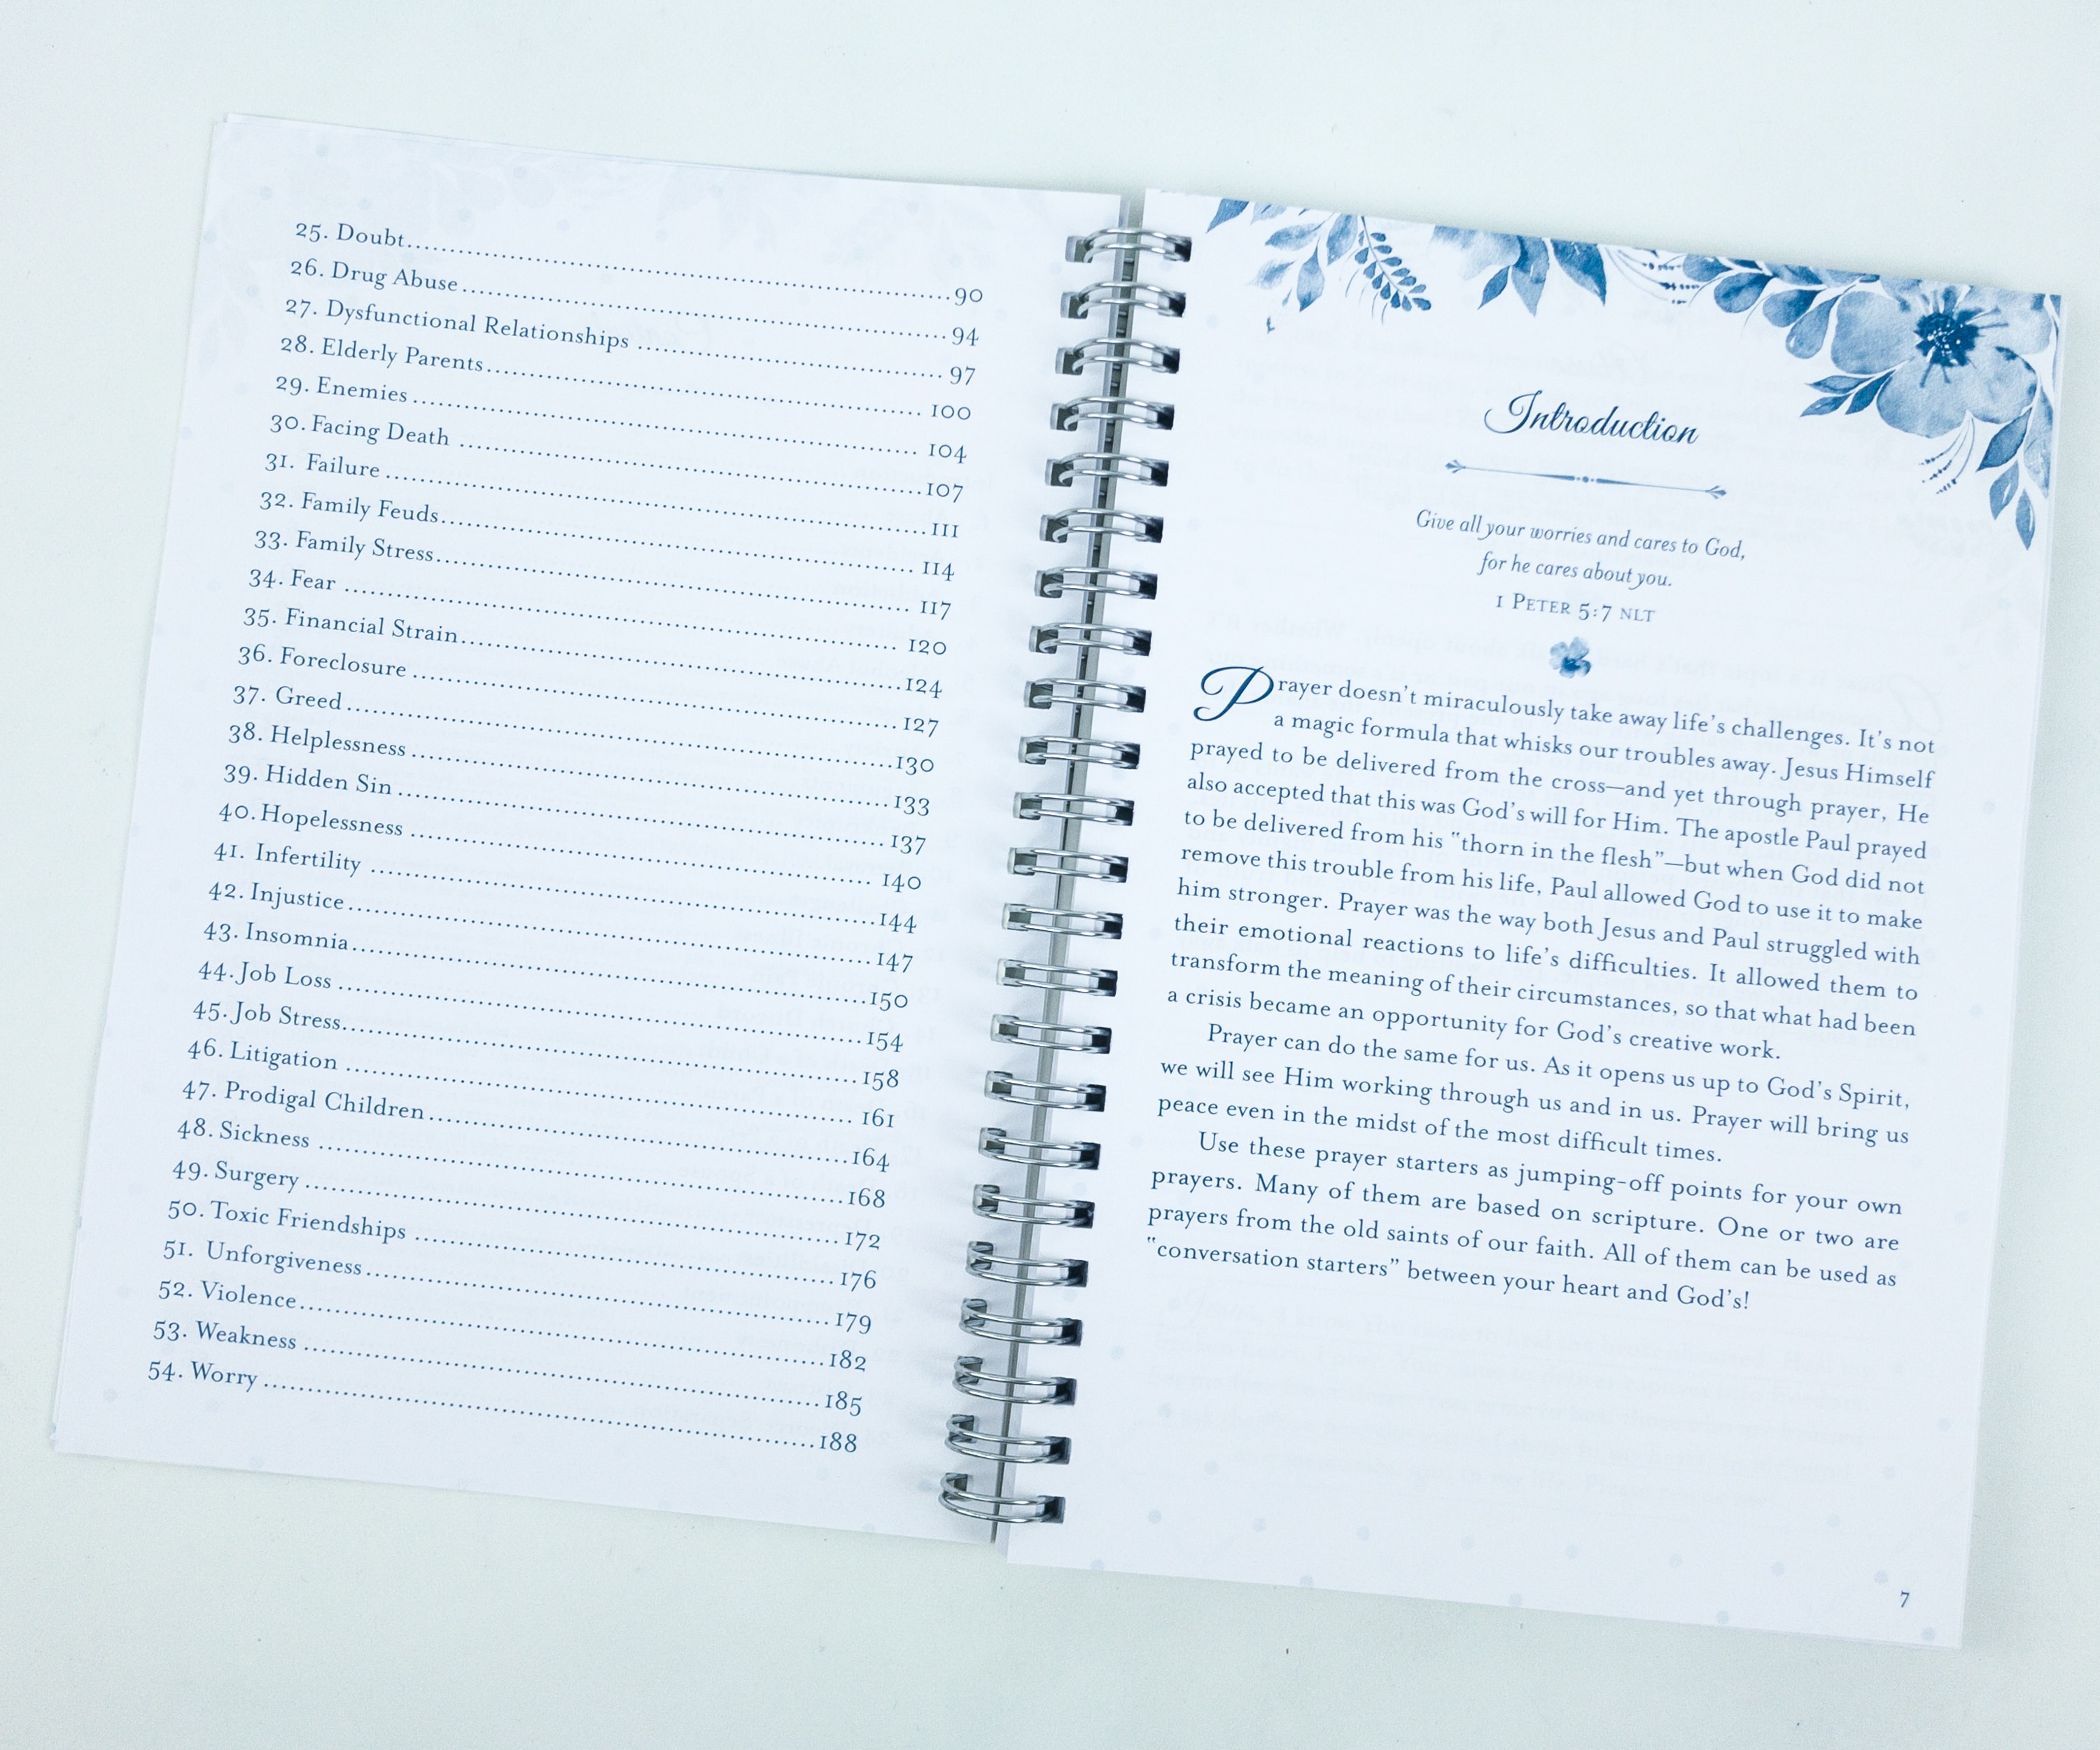 25. Doubt........90
26. Drug Abuse........94
27. Dysfunctional Relationships........97
28. Elderly Parents........100
29. Enemies........104
30. Facing Death........107
31. Failure........111
32. Family Feuds........114
33. Family Stress........117
34. Fear........120
35. Financial Strain........124
36. Foreclosure........127
37. Greed........130
38. Helplessness........133
39. Hidden Sin........137
40. Hopelessness........140
41. Infertility........144
42. Injustice........147
43. Insomnia........150
44. Job Loss........154
45. Job Stress........158
46. Litigation........161
47. Prodigal Children........164
48. Sickness........168
49. Surgery........172
50. Toxic Friendships........176
51. Unforgiveness........179
52. Violence........182
53. Weakness........185
54. Worry........188
Introduction
Give all your worries and cares to God,
for he cares about you.
1 PETER 5:7 NLT
Prayer doesn't miraculously take away life's challenges. It's not
a magic formula that whisks our troubles away. Jesus Himself
prayed to be delivered from the cross—and yet through prayer, He
also accepted that this was God's will for Him. The apostle Paul prayed
to be delivered from his "thorn in the flesh"—but when God did not
remove this trouble from his life, Paul allowed God to use it to make
him stronger. Prayer was the way both Jesus and Paul struggled with
their emotional reactions to life's difficulties. It allowed them to
transform the meaning of their circumstances, so that what had been
a crisis became an opportunity for God's creative work.
Prayer can do the same for us. As it opens us up to God's Spirit,
we will see Him working through us and in us. Prayer will bring us
peace even in the midst of the most difficult times.
Use these prayer starters as jumping-off points for your own
prayers. Many of them are based on scripture. One or two are
prayers from the old saints of our faith. All of them can be used as
"conversation starters" between your heart and God's!
7